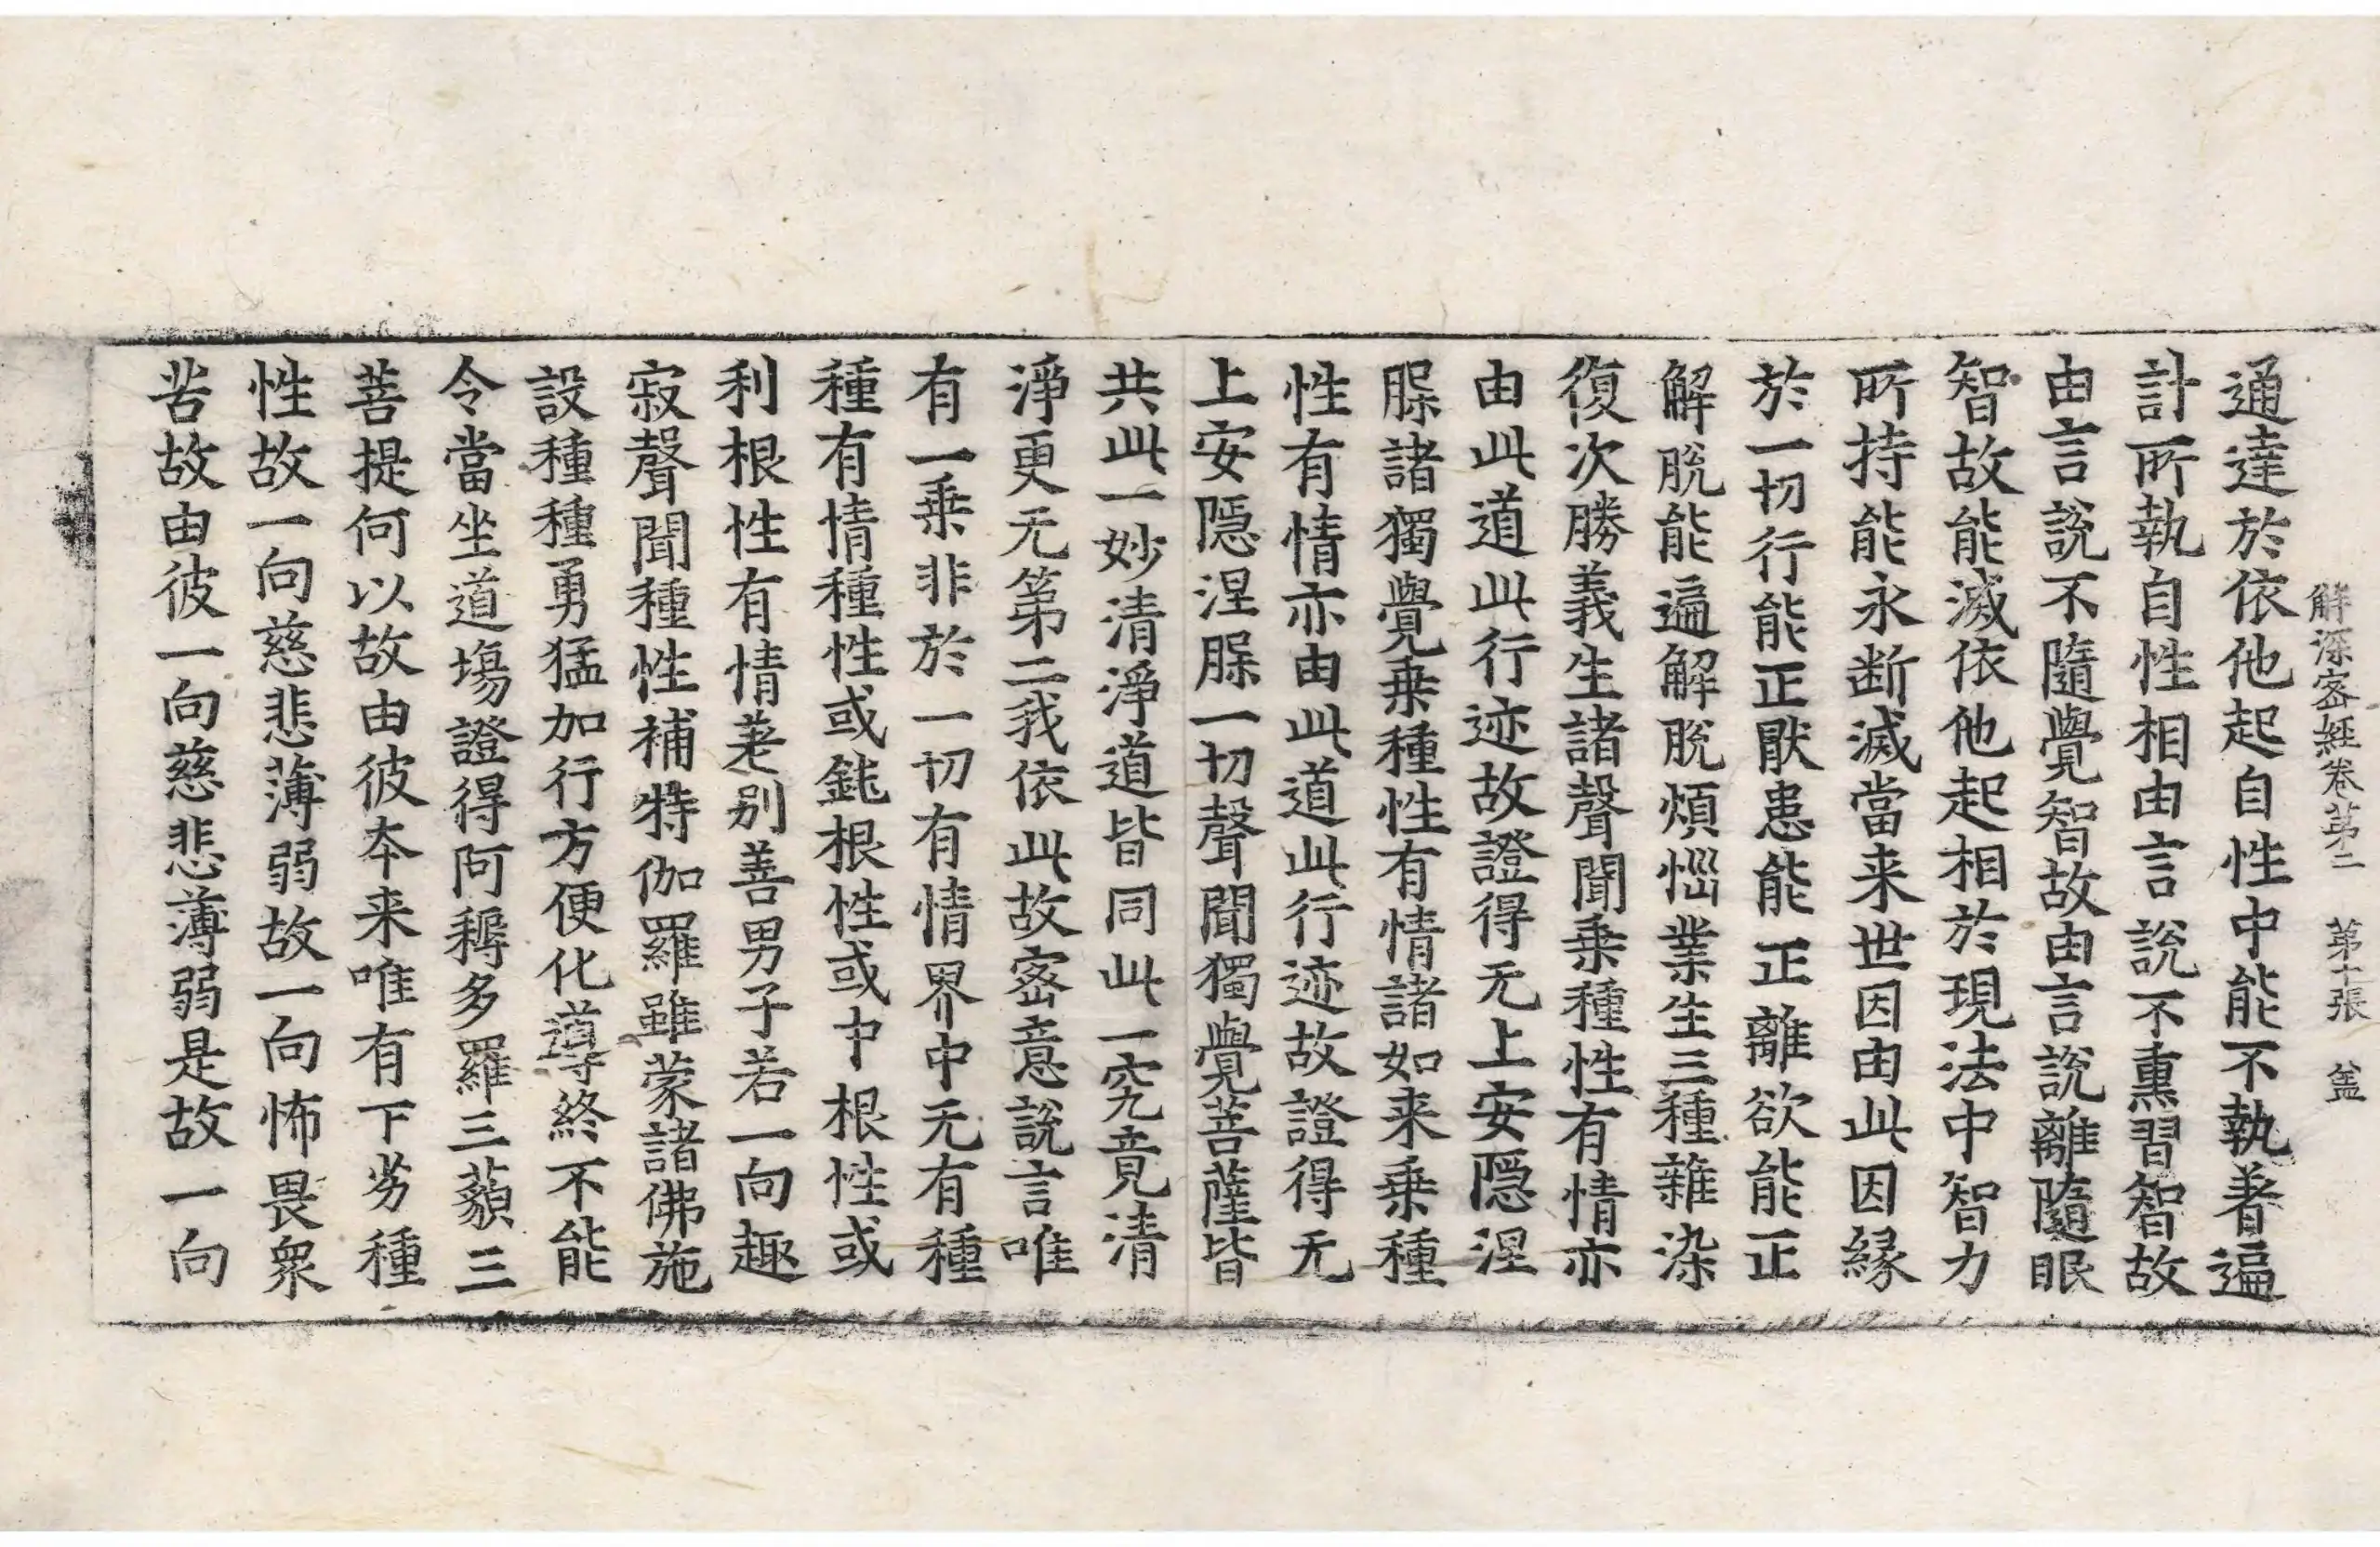 解深密經卷第二　第十張　盖
通達於依他起自性中能不執著遍
計所執自性相由言說不熏習智故
由言說不隨覺智故由言說離隨眠
智故能滅依他起相於現法中智力
所持能永断滅當来世因由此因緣
於一切行能正厭患能正離欲能正
解脫能遍解脫煩惱業生三種雜染
復次勝義生諸聲聞乗種性有情亦
由此道此行迹故證得无上安隱涅
槃諸獨覺乗種性有情諸如来乗種
性有情亦由此道此行迹故證得无
上安隱涅槃一切聲聞獨覺菩薩皆
共此一妙清淨道皆同此一究竟清
淨更无第二我依此故密意說言唯
有一乗非於一切有情界中无有種
種有情種性或鈍根性或中根性或
利根性有情差别善男子若一向趣
寂聲聞種性補特伽羅雖蒙諸佛施
設種種勇猛加行方便化導終不能
令當坐道場證得阿耨多羅三藐三
菩提何以故由彼本来唯有下劣種
性故一向慈悲薄弱故一向怖畏衆
苦故由彼一向慈悲薄弱是故一向